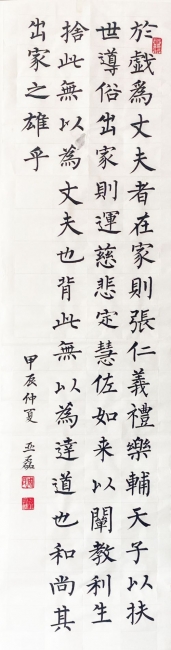 於戲為丈夫者在家則張仁義禮樂輔天子以扶
世導俗出家則運慈悲定慧佐如来以闡教利生
捨此無以為丈夫也背此無以為達道也和尚其
出家之雄乎
甲辰仲夏 亚磊